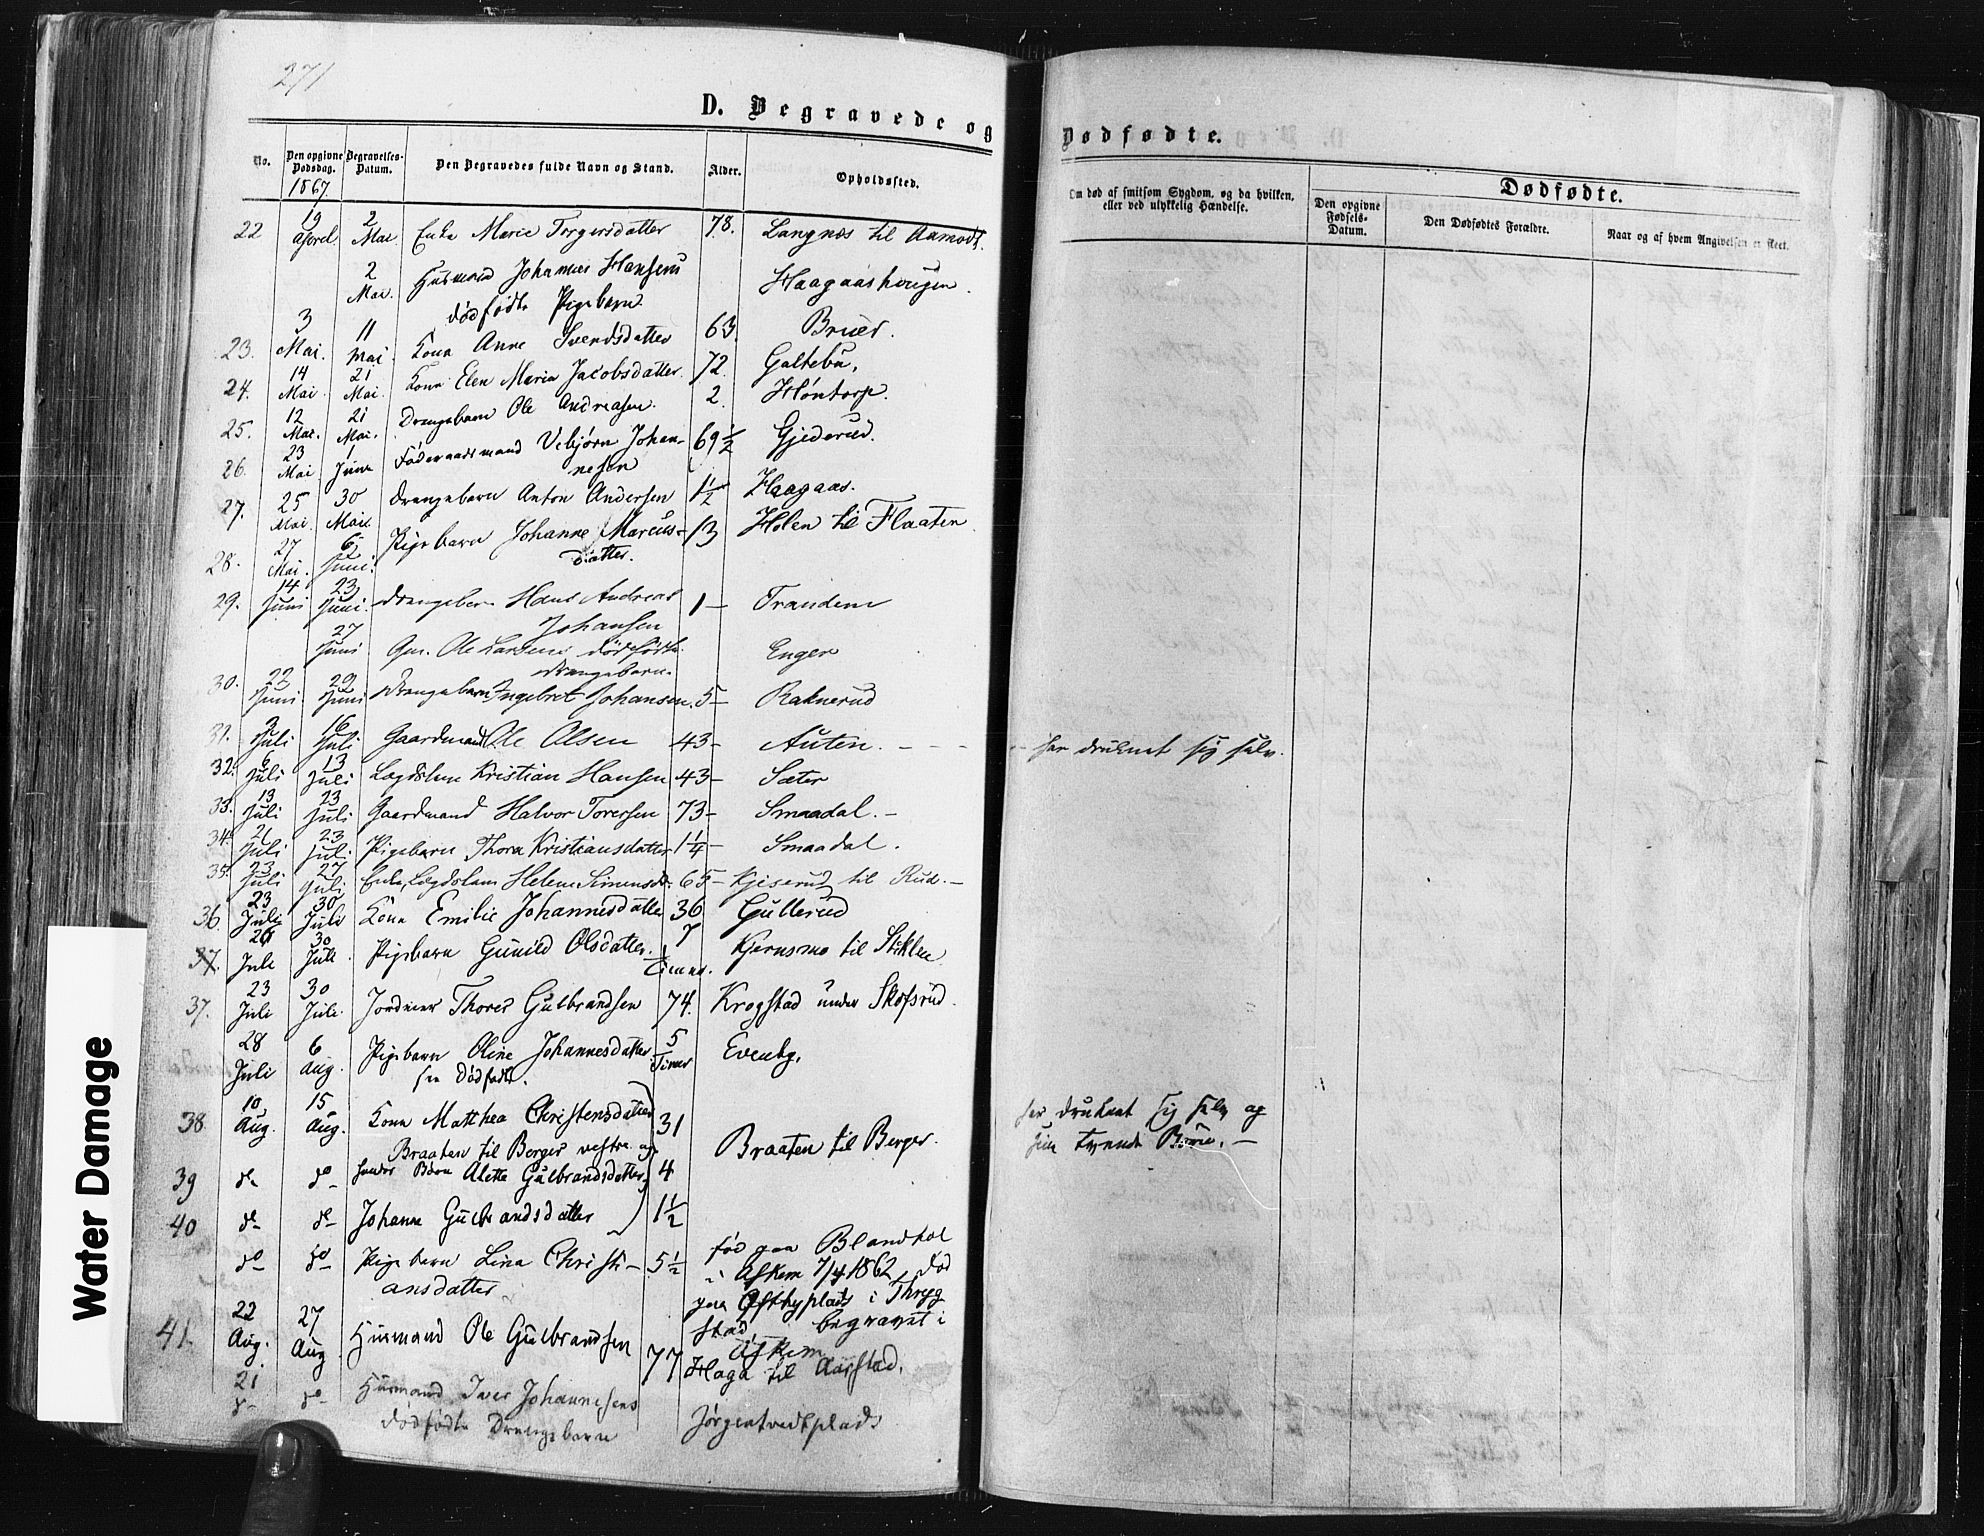 271
D. Begravede og
Dødfødte.
No.
Den opgivne Dødsdag.
1867.
Begravelses-Datum.
Den Begravedes fulde Navn og Stand.
Alder.
Opholdssted.
Om død af smitsom Sygdom, og da hvilken, eller ved ulykkelig Hændelse.
Dødfødte.
Den opgivne Fødsels-Datum.
Den Dødfødtes Forældre.
Naar og af hvem Angivelsen er skeet.
22 19 April 2 Mai Enke Marie Torgersdatter 78. Langnæs til Aamodt.
2 Mai. Husmand Johannes Hansens Haagaashaugen.
dødfødte Pigebarn.
23. 3 Mai. 11 Mai. Kona Anne Svendsdatter 63. Bruer.
24. 14 Mai. 21 Mai. Kona Elen Maria Jacobsdatter. 72. Galtebu.
25. 12 Mai. 21 Mai. Drengebarn Ole Andreasen. 2. Høntorp.
26. 23 Mai 1 Juni Føderaadsmand Vebjørn Johan- 69 1/2 Gjederud.
nesen
27. 25 Mai. 30 Mai Drengebarn Anton Andersen 1 1/2 Haagaas.
28. 27 Mai. 6 Juni. Pigebarn Johanne Marcus- 13 Holen til Flaaten
datter.
29. 14 Juni 23 Juni. Drengebarn Hans Andreas 1 – Trandem
Johansen
27 Juni Gm. Ole Larsens dødfødte Enger
Drengebarn.
30. 22 Juni 29 Juni Drengebarn Ingebret Johansen. 5 – Raknerud
31. 2 Juli 16 Juli Gaardmand Ole Olsen 43 – Auten. – – – har druknet sig selv.
32. 6 Juli 13 Juli Lægdslem Kristian Hansen 43 – Sæter
33. 13 Juli 23 Juli Gaardmand Halvor Toversen 73 – Smaadal. –
34. 21 Juli 23 Juli. Pigebarn Thora Kristiansdatter 1 1/4 – Smaadal.
35. 23 Juli 27 Juli Enke, Lægdslem Helene Simensd. 65 – Kjiserud til Rud. –
36. 23 Juli 30 Juli Kona Emilie Johannesdatter 36 Gullerud
37. 26 Juli 30 Juli. Pigebarn Gunild Olsdatter. 7 Timer. Kjernsmo til Stiklen
37. 23 Juli 30 Juli. Jordeier Thorer Gulbrandsen 74. Krogstad under Skofsrud.
28 Juli 6 Aug. Pigebarn Oline Johannesdatter 5 Timer Evenby.
38 10 Aug. 15 Aug. Kona Matthea Christensdatter 31 Braaten til Berger. har druknet sig selv og
Braaten til Berger vestre og sine tvende Børn. –
39 do do hendes Børn Alette Gulbrandsdatter, 4
40 do do Johanne Gulbrandsdatter 1 1/2
do do Pigebarn Lina Christi- 5 1/2 fød paa Blandkol
ansdatter i Askem 7/4 1862, død
paa Østbyplads i Thryg
stad, begravet i
Askem
41. 22 Aug. 27 Aug Husmand Ole Gulbrandsen 77 Haga til Aarstad.
21 do do Husmand Iver Johannesens Jørgentvedtplads
dødfødte Drengebarn
Water Damage